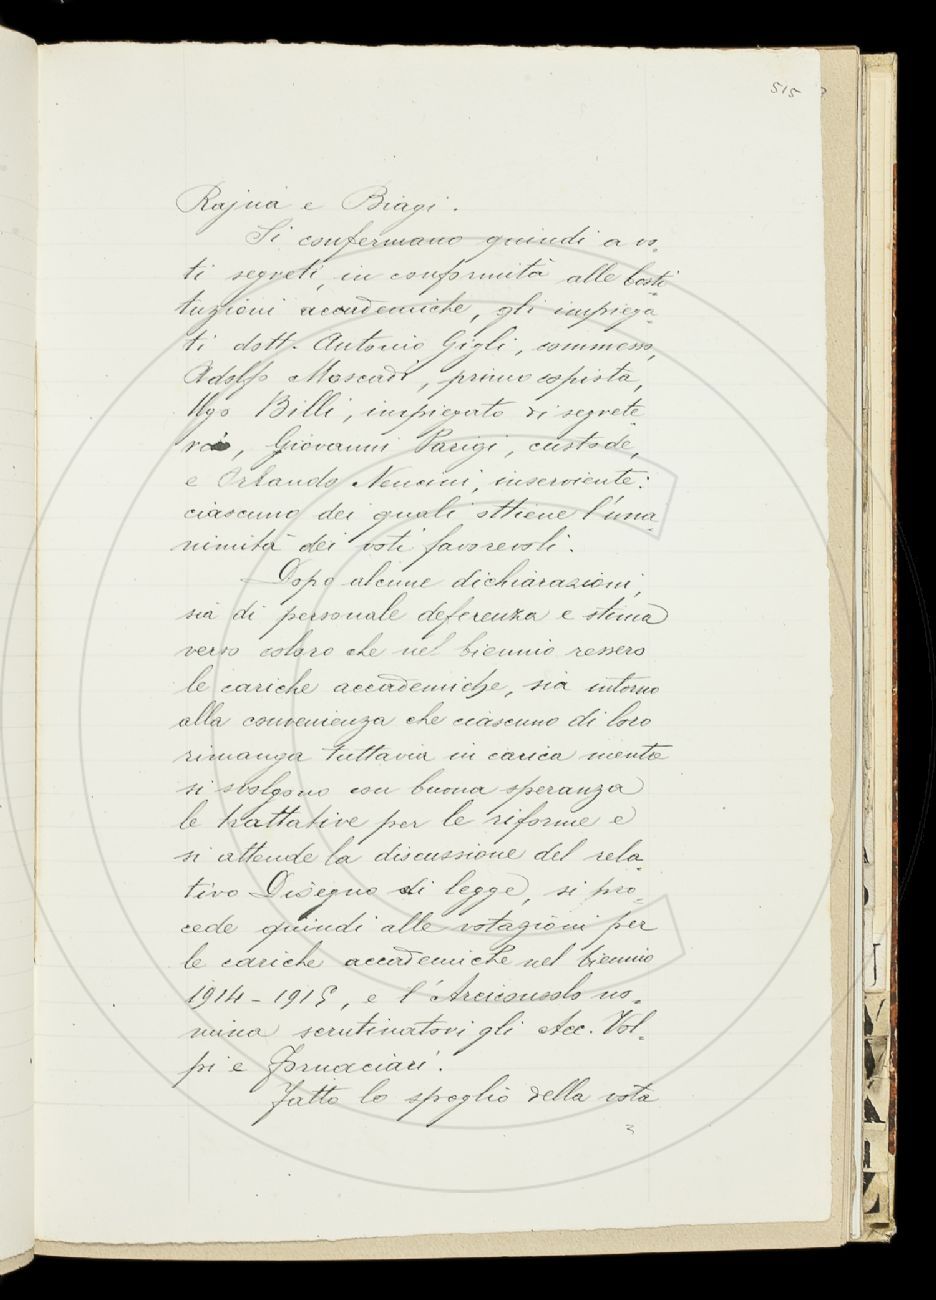 515
Rajna e Biagi.
Si confermano quindi a vo-
ti segreti, in conformità alle Costi-
tuzioni accademiche, gli impiega-
ti dott. Antonio Gigli, commesso,
Adolfo Moscadi, primo copista,
Ugo Billi, impiegato di segrete-
ria, Giovanni Parigi, custode,
e Orlando Nencini, inserviente:
ciascuno dei quali ottiene l'una-
nimità dei voti favorevoli.
Dopo alcune dichiarazioni,
sia di personale deferenza e stima
verso coloro che nel biennio ressero
le cariche accademiche, sia intorno
alla convenienza che ciascuno di loro
rimanga tuttavia in carica mentre
si svolgono con buona speranza
le trattative per le riforme e
si attende la discussione del rela-
tivo Disegno di legge, si pro-
cede quindi alle votazioni per
le cariche accademiche nel biennio
1914-1915, e l'Arciconsolo no-
mina scrutinatori gli Acc. Vol-
pi e Fornaciari.
Fatto lo spoglio della vota
3